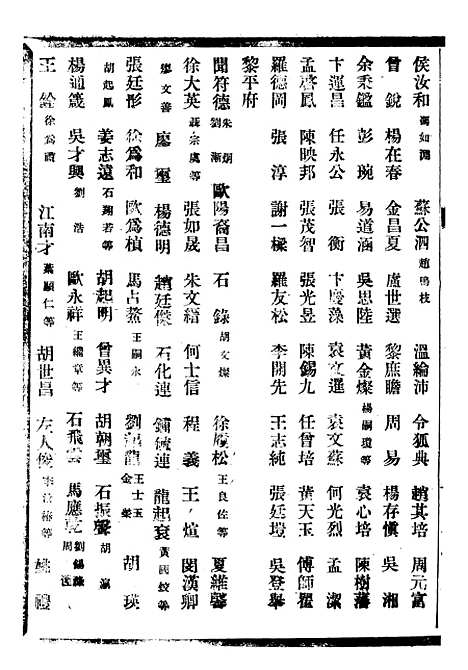 侯汝和 蘇公泗 趙鳴枝 溫綸沛 令狐典 趙其培 周元富
曾銳 楊在春 金昌夏 盧世選 黎庶瞻 周易 楊存愼 吳湘
余秉鑑 彭琬 易道涵 吳思陸 黃金燦 楊嗣瓊等 袁心培 陳樹藩
卞運昌 任永公 張衡 卞慶藻 袁文選 袁文蘇 何光烈 孟潔
孟啓鳳 陳映邦 張茂智 張光昱 陳錫九 任曾培 葉天玉 傅師瞿
羅德岡 張淳 謝一樑 羅友松 李開先 王志純 張廷瑝 吳登擧
黎平府
聞符德 朱炳 劉漸 歐陽裔昌 石錄 胡文燦 徐履松 王良佐等 夏維馨
徐大英 聶宗虞等 張如晟 朱文縉 何士信 程義 王煊 閔漢卿
廖文善 廖璽 楊德明 趙廷傑 石化連 鍾毓連 龍起袞
張廷彤 徐爲和 歐爲楨 馬占鰲 王嗣永 劉 龍 王士五 金榮 胡瑛
胡起鳳 姜志遠 石翔若等 胡起明 曾異才 胡朝璽 石振聲 胡瀛
楊通箴 吳才興 劉浩 歐永祥 王繼章等 石飛雲 馬應乾 周
王鎗 徐爲禮 江南才 葉顯仁等 胡世昌 左人俊 姚禮